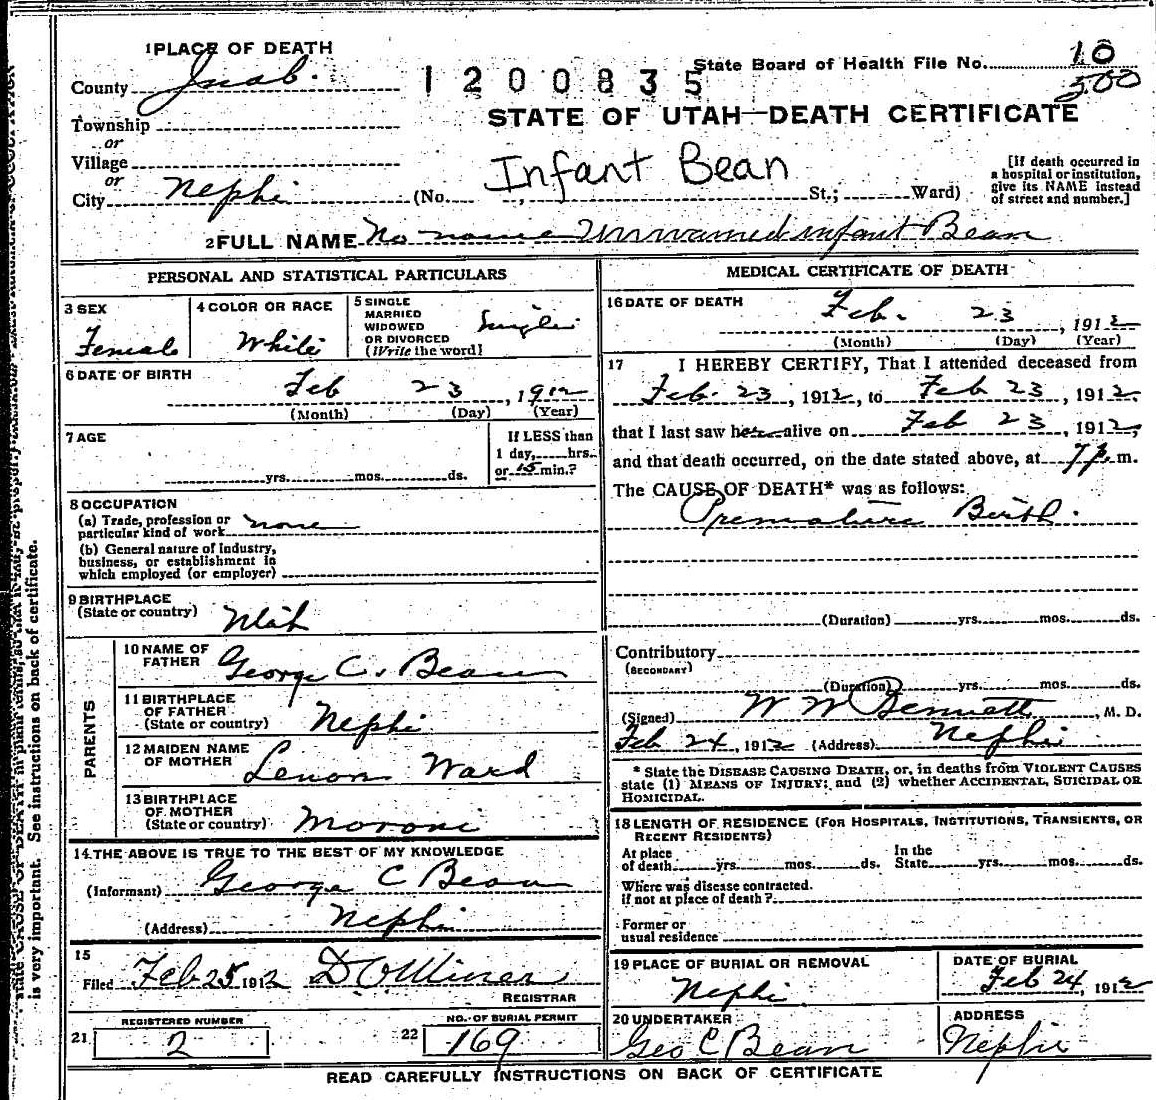 1 PLACE OF DEATH
County Juab.
1200835
State Board of Health File No. 10
500
STATE OF UTAH—DEATH CERTIFICATE
Township
or
Village
or
City Nephi (No. , St.; Ward)
Infant Bean
[If death occurred in
a hospital or institution,
give its NAME instead
of street and number.]
2 FULL NAME No name Unnamed infant Bean
PERSONAL AND STATISTICAL PARTICULARS
3 SEX
Female
4 COLOR OR RACE
White
5 SINGLE
MARRIED
WIDOWED
OR DIVORCED
(Write the word)
Single
6 DATE OF BIRTH
Feb 23, 1912
(Month) (Day) (Year)
7 AGE
yrs. mos. ds.
If LESS than
1 day, hrs.
or 15 min.?
8 OCCUPATION
(a) Trade, profession or
particular kind of work none
(b) General nature of industry,
business, or establishment in
which employed (or employer)
9 BIRTHPLACE
(State or country)
Utah
PARENTS
10 NAME OF
FATHER George C. Bean
11 BIRTHPLACE
OF FATHER
(State or country) Nephi
12 MAIDEN NAME
OF MOTHER Lenora Ward
13 BIRTHPLACE
OF MOTHER
(State or country) Moroni
14 THE ABOVE IS TRUE TO THE BEST OF MY KNOWLEDGE
(Informant) George C Bean
(Address) Nephi
15
Filed Feb 25 1912 D O Miner
REGISTRAR
REGISTERED NUMBER
21 2
NO. OF BURIAL PERMIT
22 169
MEDICAL CERTIFICATE OF DEATH
16 DATE OF DEATH
Feb. 23, 1912
(Month) (Day) (Year)
17 I HEREBY CERTIFY, That I attended deceased from
Feb. 23, 1912, to Feb 23, 1912.
that I last saw her alive on Feb 23, 1912,
and that death occurred, on the date stated above, at 7 p. m.
The CAUSE OF DEATH* was as follows:
Premature Birth.
(Duration) yrs. mos. ds.
Contributory
(SECONDARY)
(Duration) yrs. mos. ds.
(Signed) W W Bennett, M. D.
Feb 24, 1912 (Address) Nephi
* State the DISEASE CAUSING DEATH, or, in deaths from VIOLENT CAUSES
state (1) MEANS OF INJURY; and (2) whether ACCIDENTAL, SUICIDAL OR
HOMICIDAL.
18 LENGTH OF RESIDENCE (FOR HOSPITALS, INSTITUTIONS, TRANSIENTS, OR
RECENT RESIDENTS)
At place
of death yrs. mos. ds.
In the
State yrs. mos. ds.
Where was disease contracted.
if not at place of death?
Former or
usual residence
19 PLACE OF BURIAL OR REMOVAL
Nephi
DATE OF BURIAL
Feb 24, 1912
20 UNDERTAKER
Geo C Bean
ADDRESS
Nephi
READ CAREFULLY INSTRUCTIONS ON BACK OF CERTIFICATE
is very important. See instructions on back of certificate.